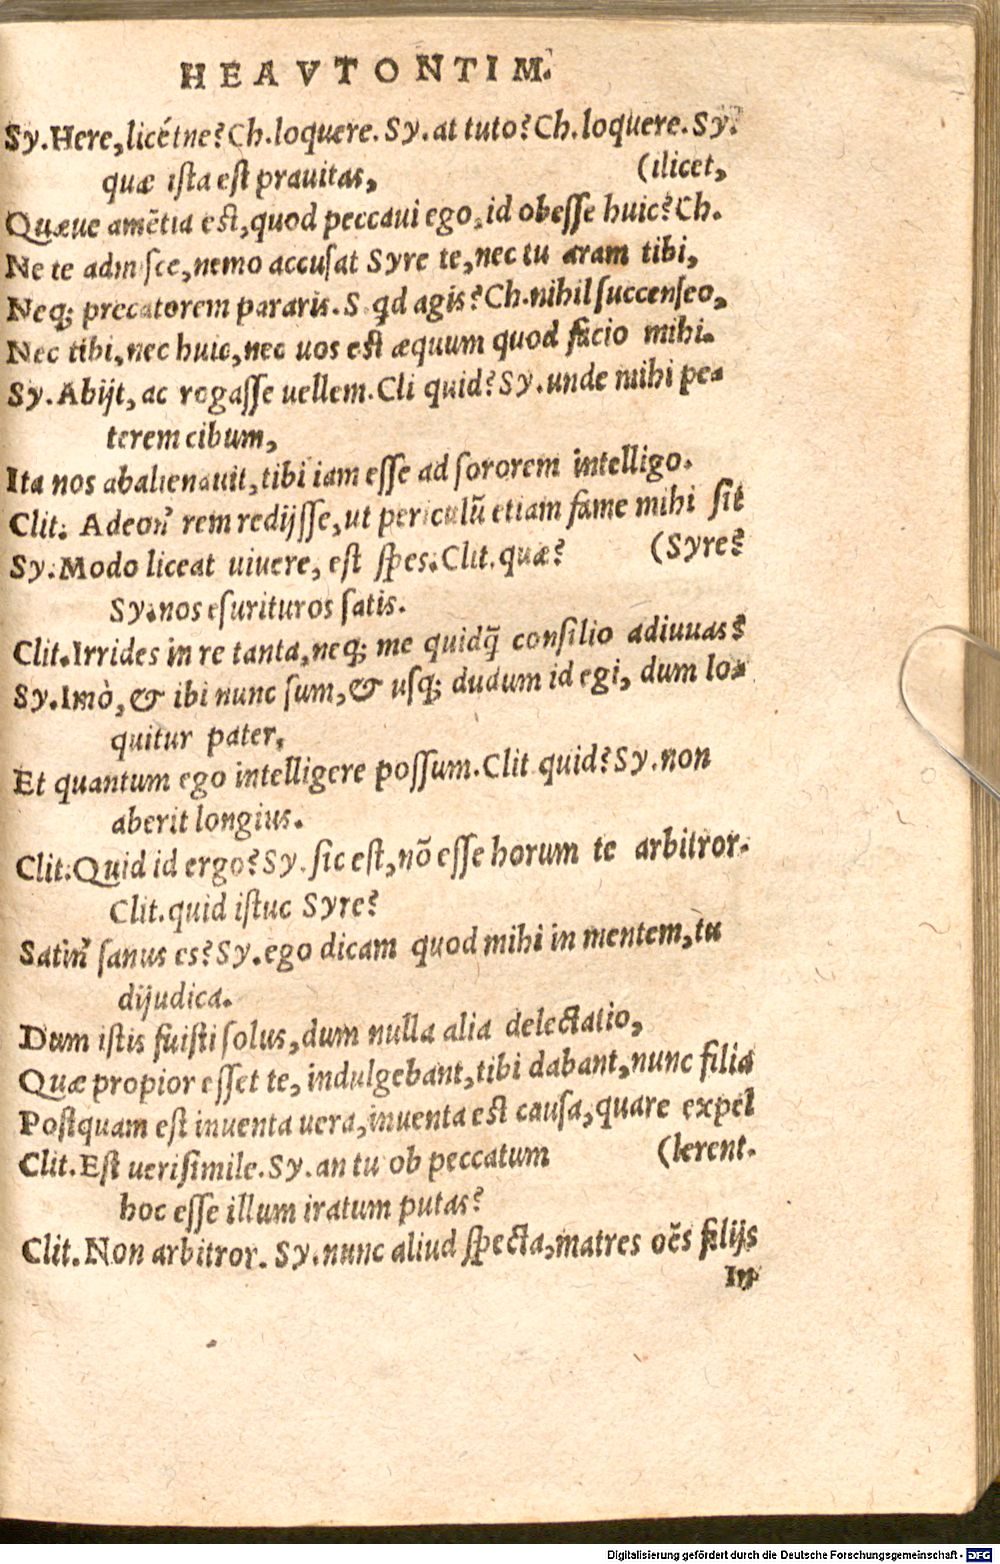 HEAVTONTIM.
Sy. Here, licétne? Ch. loquere. Sy. at tuto? Ch. loquere. Sy.
quæ ista est prauitas, (ilicet,
Quæue amẽtia est, quod peccaui ego, id obesse huic? Ch.
Ne te admisce, nemo accusat Syre te, nec tu aram tibi,
Neq; precatorem pararis. S. qd agis? Ch. nihil succenseo,
Nec tibi, nec huic, nec uos est æquum quod facio mihi.
Sy. Abijt, ac rogasse uellem. Cli quid? Sy. unde mihi pe-
terem cibum,
Ita nos abalienauit, tibi iam esse ad sororem intelligo.
Clit. Adeon' rem redijsse, ut periculũ etiam fame mihi sit
Sy. Modo liceat uiuere, est spes. Clit. quæ? (Syre?
Sy. nos esurituros satis.
Clit. Irrides in re tanta, neq; me quidq̃ consilio adiuuas?
Sy. Imò, & ibi nunc sum, & usq; dudum id egi, dum lo-
quitur pater,
Et quantum ego intelligere possum. Clit quid? Sy. non
aberit longius.
Clit. Quid id ergo? Sy. sic est, nõ esse horum te arbitror.
Clit. quid istuc Syre?
Satin' sanus es? Sy. ego dicam quod mihi in mentem, tu
dijudica.
Dum istis fuisti solus, dum nulla alia delectatio,
Quæ propior esset te, indulgebant, tibi dabant, nunc filia
Postquam est inuenta uera, inuenta est causa, quare expel
Clit. Est uerisimile. Sy. an tu ob peccatum (lerent.
hoc esse illum iratum putas?
Clit. Non arbitror. Sy. nunc aliud specta, matres oẽs filijs
In
Digitalisierung gefördert durch die Deutsche Forschungsgemeinschaft - DFG